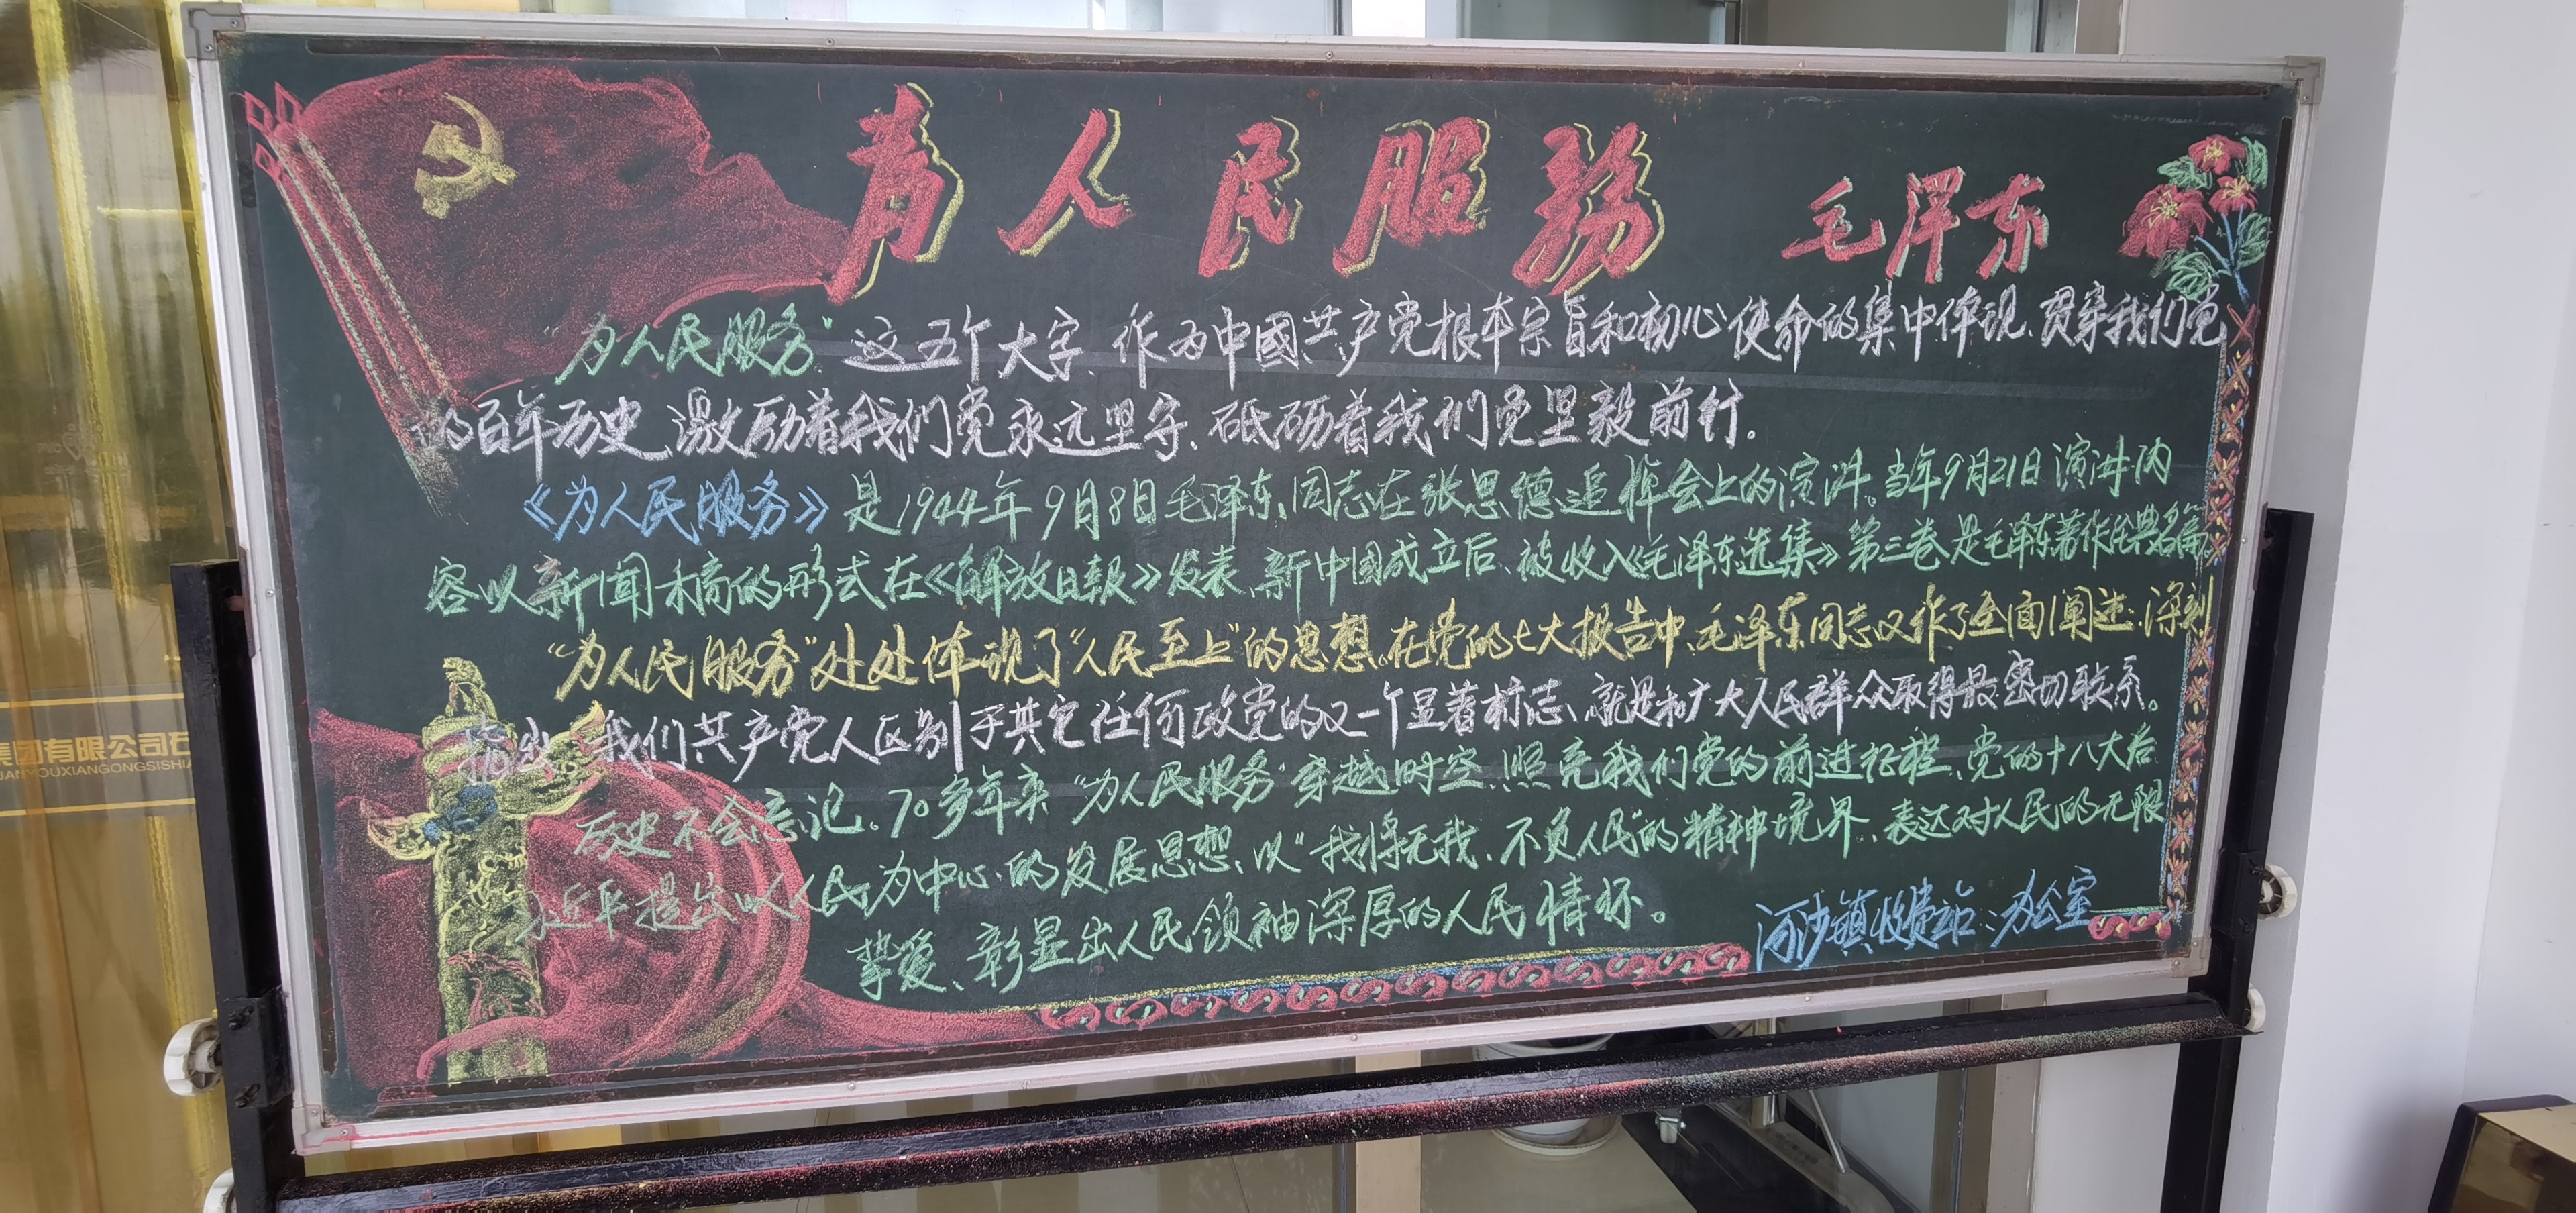 为人民服务 毛泽东
为人民服务"这五个大字、作为中國共产党根本宗旨和初心使命的集中体现、贯穿我们党
的百年历史、激励着我们党永远坚守、砥砺着我们党坚毅前行。
《为人民服务》是1944年9月8日毛泽东同志在张思德追悼会上的演讲。当年9月21日演讲内
容以新闻稿的形式在《解放日報》发表、新中國成立后、被收入《毛泽东选集》第三卷是毛泽东著作经典名篇。
"为人民服务"处处体现了"人民至上"的思想、在党的七大报告中、毛泽东同志又作了全面阐述:深刻
指出 我们共产党人区别于其它任何政党的又一个显著标志、就是和广大人民群众取得最密切联系。
历史不会忘记。70多年来"为人民服务"穿越时空、照亮我们党的前进征程、党的十八大后
习近平提出以人民为中心的发展思想、以"我将无我、不负人民"的精神境界、表达对人民的无限
挚爱、彰显出人民领袖深厚的人民情怀。
河沙镇收费站:办公室
集团有限公司石
UANYOUXIANGONGSISHIJ